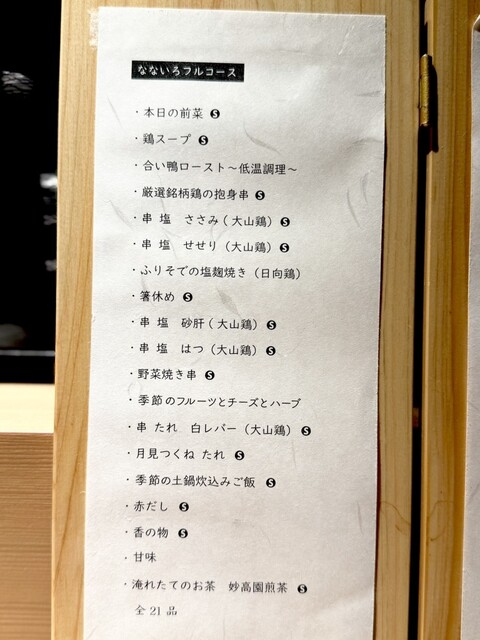 なないろフルコース
・本日の前菜 S
・鶏スープ S
・合い鴨ロースト～低温調理～
・厳選銘柄鶏の抱身串 S
・串 塩 ささみ(大山鶏) S
・串 塩 せせり(大山鶏) S
・ふりそでの塩麹焼き(日向鶏)
・箸休め S
・串 塩 砂肝(大山鶏) S
・串 塩 はつ(大山鶏) S
・野菜焼き串 S
・季節のフルーツとチーズとハーブ
・串 たれ 白レバー(大山鶏) S
・月見つくね たれ S
・季節の土鍋炊込みご飯 S
・赤だし S
・香の物 S
・甘味
・淹れたてのお茶 妙高園煎茶 S
全21品